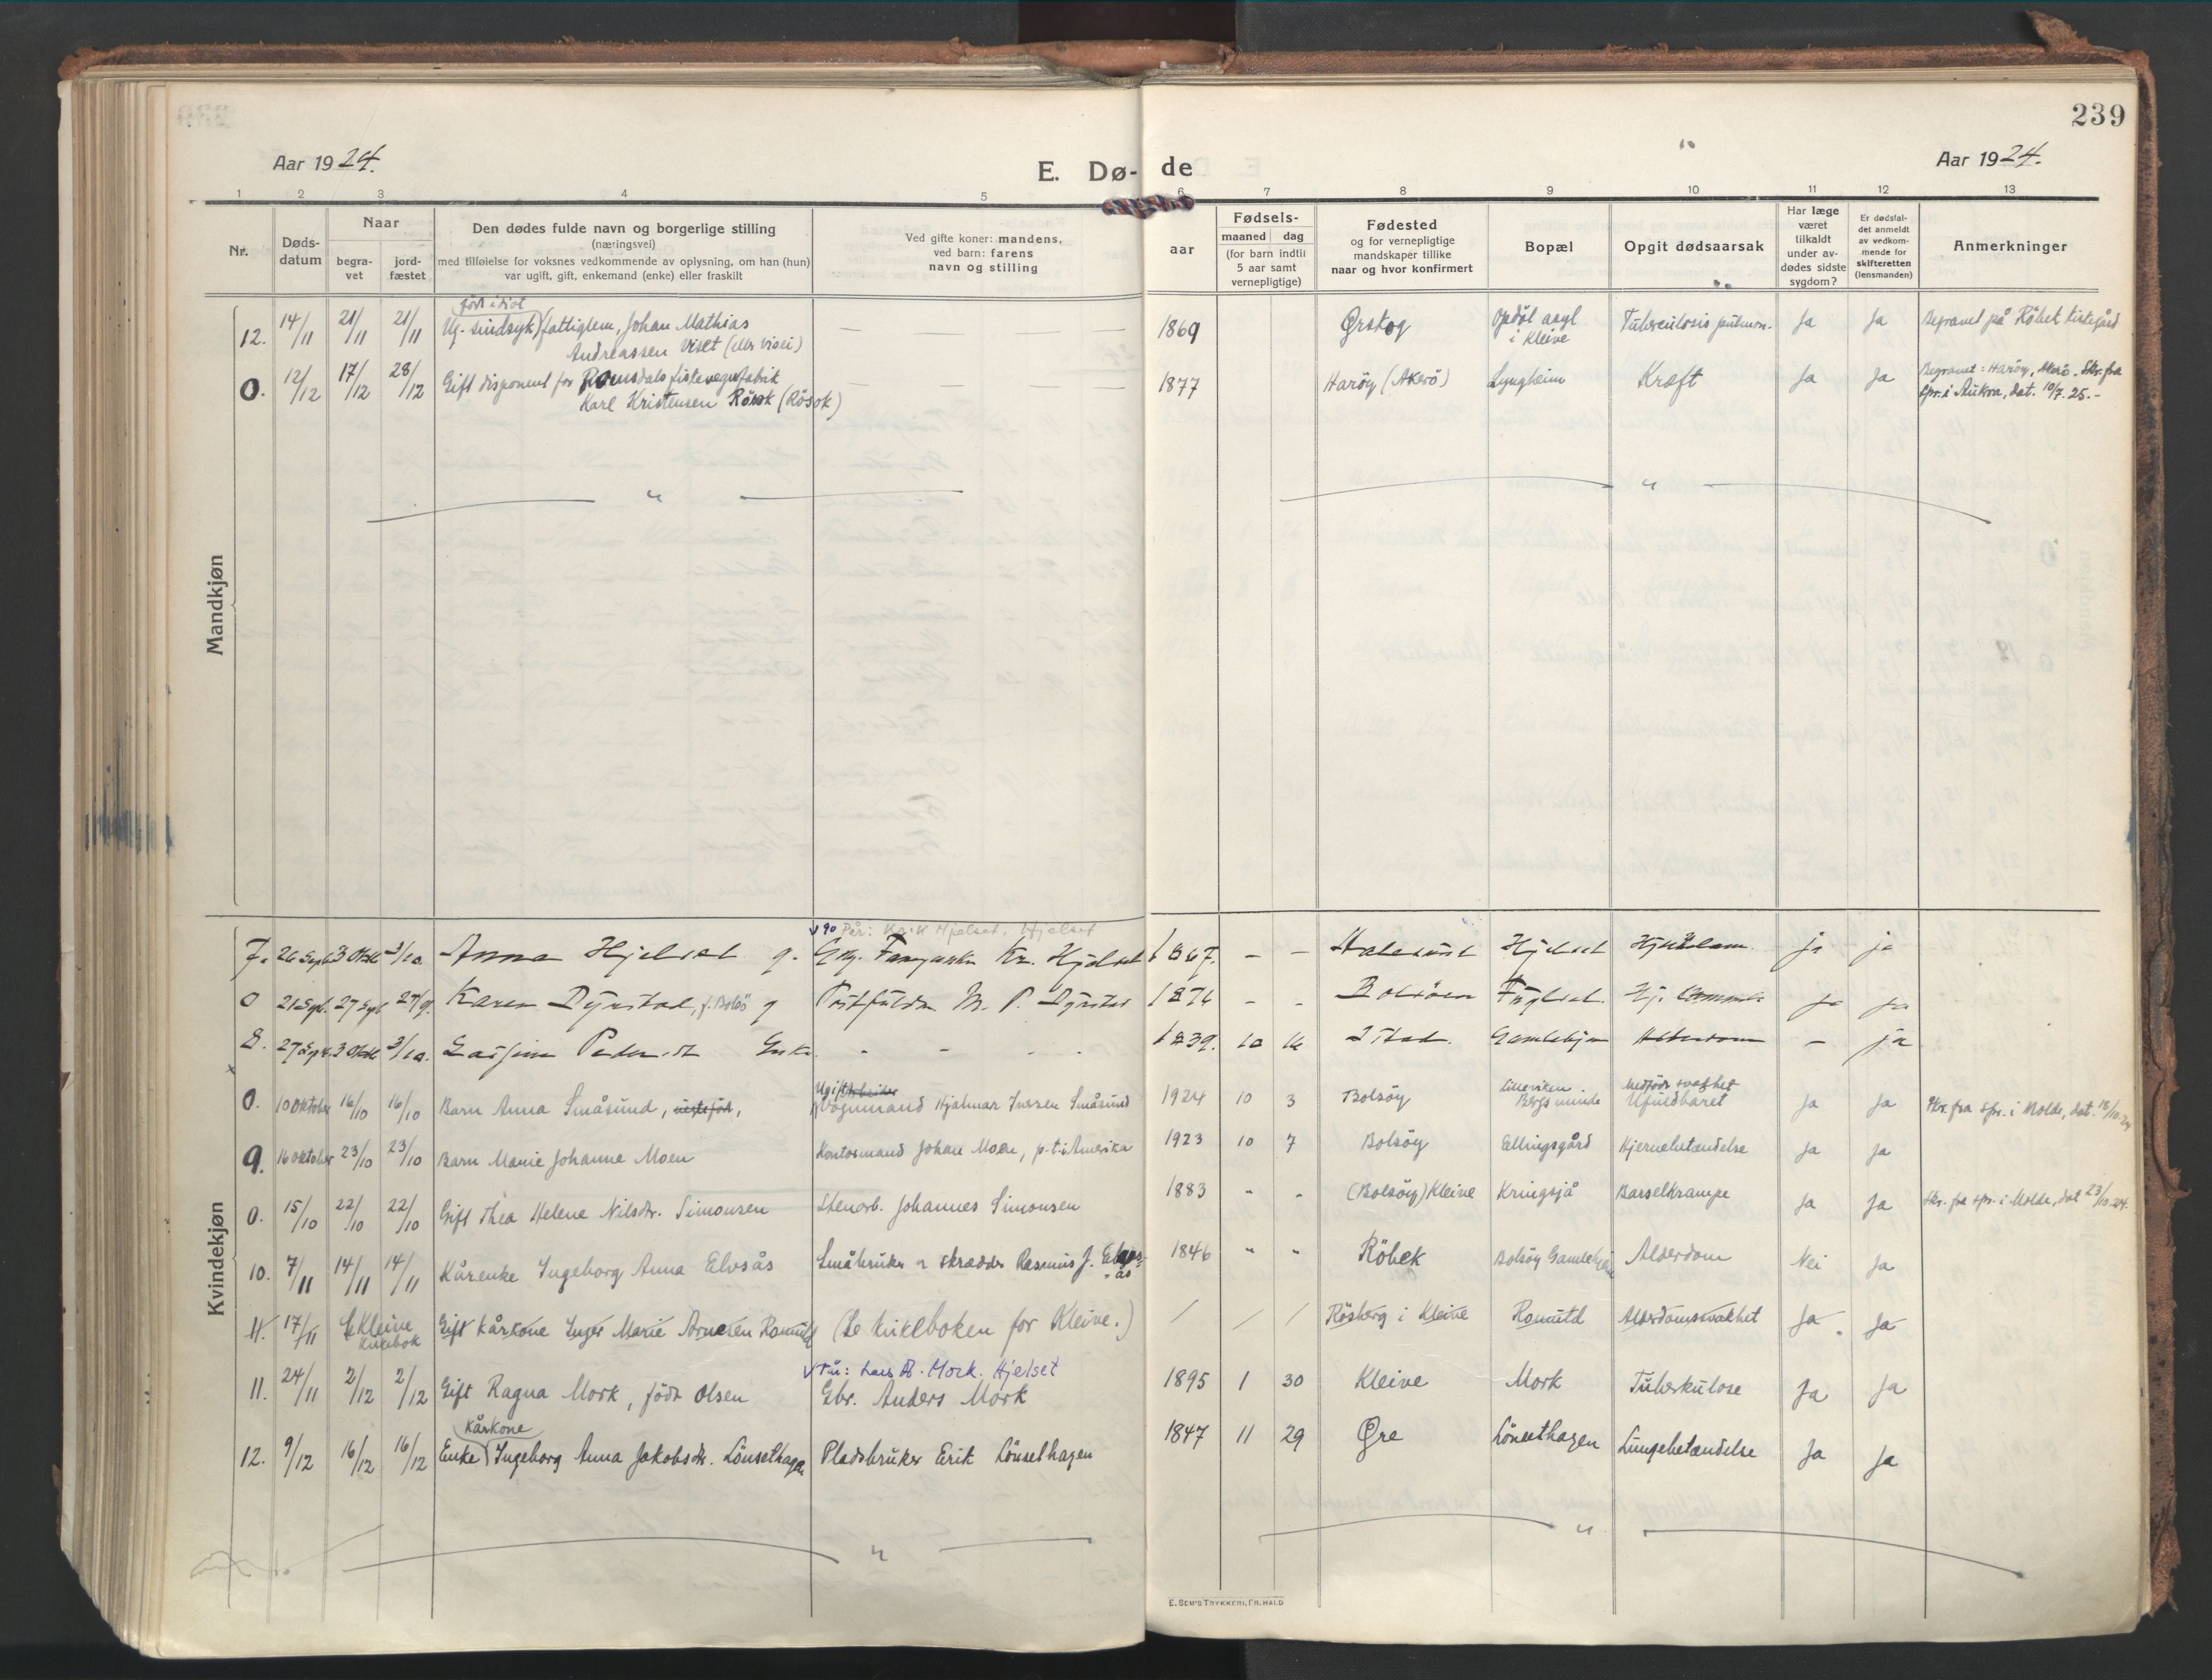 239
Aar 1924.
E. Dø- de
Aar 1924.
1 2 3 4 5 6 7 8 9 10 11 12 13
Nr.
Døds-
datum
Naar
begra-
vet
jord-
fæstet
Den dødes fulde navn og borgerlige stilling
(næringsvei)
med tilføielse for voksnes vedkommende av oplysning, om han (hun)
var ugift, gift, enkemand (enke) eller fraskilt
Ved gifte koner: mandens,
ved barn: farens
navn og stilling
aar
Fødsels-
maaned dag
(for barn indtil
5 aar samt
vernepligtige)
Fødested
og for vernepligtige
mandskaper tillike
naar og hvor konfirmert
Bopæl
Opgit dødsaarsak
Har læge
været
tilkaldt
under av-
dødes sidste
sygdom?
Er dødsfal-
det anmeldt
av vedkom-
mende for
skifteretten
(lensmanden)
Anmerkninger
Mandkjøn
født idiot
12. 14/11 21/11 21/11 Ug. sindsyk) fattiglem, Johan Mathias — — — 1869 Ørskog Opdöl asyl Tuberculosis pulmon. Ja Ja Begravet på Röbek kirkegård
Andreassen Viset (eller Visei) i Kleive
O. 12/12 17/12 28/12 Gift disponent for Romsdals fiskevegnfabrik — — — 1877 Haröy (Akerö) Lyngheim Kræft Ja Ja Begravet: Haröy, Skr. fra
Karl Kristensen Rösok (Rösok) spr. i Aukra, dat. 10/7. 25.-
"
"
Kvindekjøn
Hjelset, Hjelset
7. 26 Sept 3 Okt 3/10. Anna Hjelset g. Kr. Hjelset 1867. — — Hjelset ja ja
O 21 Sept. 27 Sept 27/9. Karen Dyrstad, f. Bolsö g M. P. Dyrstad 1876 - - Bolsöen Fuglset. ja ja
8. 27 Sept. 3 Okt 3/10. Enke. - - - 1839. 10 Gamlehjem Alderdom — ja
Ugift Arbeider Lilleviken. Medfödt svakhet
O. 10 Oktober 16/10 16/10 Barn Anna Småsund, Vognmand Hjalmar Iversen Småsund 1924 10 3 Bolsöy Bergsmunde Ufuldbåret Ja Ja Skr. fra spr. i Molde, dat. 18/10.24
9. 16 Oktober 23/10 23/10 Barn Marie Johanne Moen Kontormand Johan Moen, p.t. i Amerika 1923 10 7 Bolsöy Ellingsgård Hjernebetændelse Ja Ja
O. 15/10 22/10 22/10 Gift Thea Helene Nilsdr. Simonsen Stenarb. Johannes Simonsen 1883 - - (Bolsöy) Kleive Kringsjå Barselkrampe Ja Ja Skr. fra spr. i Molde, dat 23/10.24.
10. 7/11 14/11 14/11 Kårenke Ingeborg Anna Elvsås Småbruker og skrædder Rasmus J. Elvs-
ås 1846 " " Röbek Bolsöy Gamlehjem Alderdom Nei Ja
11. 17/11 Se Kleive Kirkebok Gift kårkone Inger Marie Arnesen Romuld (Se kirkeboken for Kleive.) / / / Rösberg i Kleive Romuld Alderdomssvakhet Ja. Ja
Mork. Hjelset
11. 24/11 2/12 2/12 Gift Ragna Mork, født Olsen Gbr. Anders Mork 1895 1 30 Kleive Mork Tuberkulose Ja Ja
Kårkone
12. 9/12 16/12 16/12 Enke Ingeborg Anna Jakobsdr. Lönsethagen Pladsbruker Erik Lönsethagen 1847 11 29 Øre Lönsethagen Lungebetændelse Ja Ja
"
"
E. SEM'S TRYKKERI, FR.HALD